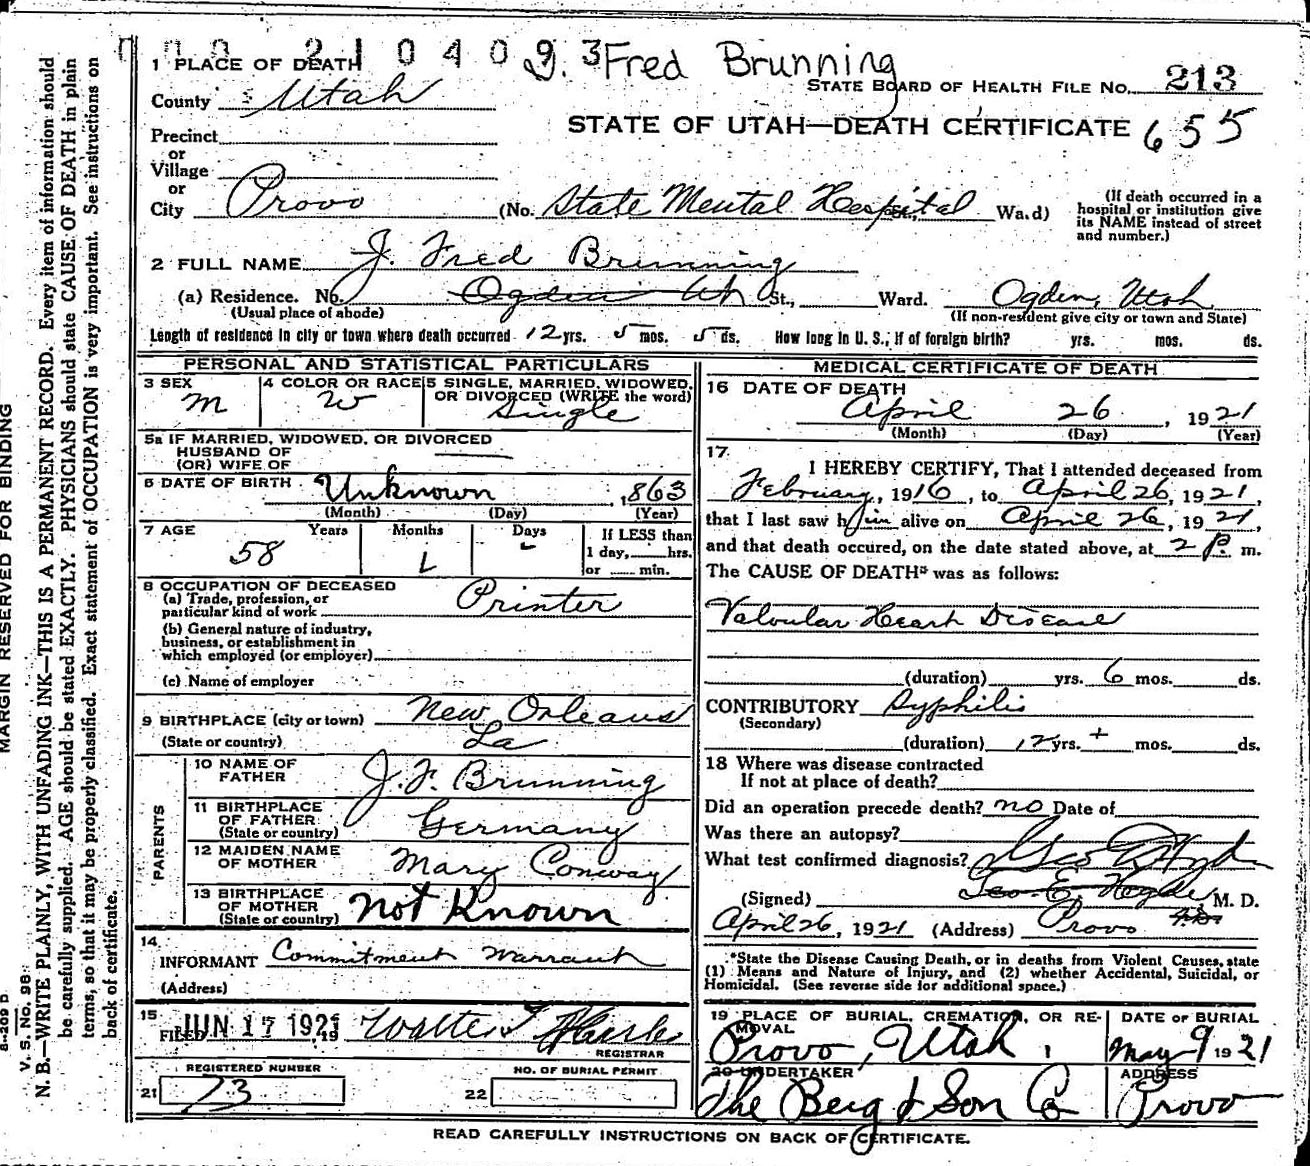 000 210409 3
J. Fred Brunning
1 PLACE OF DEATH
STATE BOARD OF HEALTH FILE No. 213
County Utah
STATE OF UTAH—DEATH CERTIFICATE 655
Precinct
or
Village
or
City Provo (No. State Mental Hospital Wa.d)
(If death occurred in a hospital or institution give its NAME instead of street and number.)
2 FULL NAME J. Fred Brunning
(a) Residence. No. Ogden Ut St., Ward. Ogden, Utah
(Usual place of abode) (If non-resident give city or town and State)
Length of residence in city or town where death occurred 12 yrs. 5 mos. 5 ds. How long in U. S., if of foreign birth? yrs. mos. ds.
PERSONAL AND STATISTICAL PARTICULARS
3 SEX M
4 COLOR OR RACE W
5 SINGLE, MARRIED, WIDOWED, OR DIVORCED (WRITE the word) Single
5a IF MARRIED, WIDOWED, OR DIVORCED
HUSBAND OF
(OR) WIFE OF
6 DATE OF BIRTH Unknown , 1863
(Month) (Day) (Year)
7 AGE Years Months Days If LESS than
58 1 day, hrs.
or min.
8 OCCUPATION OF DECEASED
(a) Trade, profession, or
particular kind of work Printer
(b) General nature of industry,
business, or establishment in
which employed (or employer)
(c) Name of employer
9 BIRTHPLACE (city or town) New Orleans
(State or country) La
PARENTS
10 NAME OF FATHER J. F. Brunning
11 BIRTHPLACE OF FATHER
(State or country) Germany
12 MAIDEN NAME OF MOTHER Mary Conway
13 BIRTHPLACE OF MOTHER
(State or country) Not Known
14
INFORMANT Commitment Warrant
(Address)
15
FILED JUN 17 1921, 19 Walter T
REGISTRAR
REGISTERED NUMBER
21 73
NO. OF BURIAL PERMIT
22
MEDICAL CERTIFICATE OF DEATH
16 DATE OF DEATH
April 26, 1921
(Month) (Day) (Year)
17
I HEREBY CERTIFY, That I attended deceased from
February, 1916, to April 26, 1921,
that I last saw him alive on April 26, 1921,
and that death occured, on the date stated above, at 2 P. m.
The CAUSE OF DEATH* was as follows:
Valvular Heart Disease
(duration) yrs. 6 mos. ds.
CONTRIBUTORY Syphilis
(Secondary)
(duration) 12 yrs. + mos. ds.
18 Where was disease contracted
If not at place of death?
Did an operation precede death? no Date of
Was there an autopsy?
What test confirmed diagnosis? Geo E Hyde
(Signed) Geo. E. Hyde M. D.
April 26, 1921 (Address) Provo
*State the Disease Causing Death, or in deaths from Violent Causes, state
(1) Means and Nature of Injury, and (2) whether Accidental, Suicidal, or
Homicidal. (See reverse side for additional space.)
19 PLACE OF BURIAL, CREMATION, OR REMOVAL
Provo, Utah.
DATE OF BURIAL
May 9 1921
20 UNDERTAKER
The Berg & Son Co
ADDRESS
Provo
READ CAREFULLY INSTRUCTIONS ON BACK OF CERTIFICATE.
MARGIN RESERVED FOR BINDING
8-209 D
V. S. No. 98
N. B.—WRITE PLAINLY, WITH UNFADING INK—THIS IS A PERMANENT RECORD. Every item of information should
be carefully supplied. AGE should be stated EXACTLY. PHYSICIANS should state CAUSE OF DEATH in plain
terms, so that it may be properly classified. Exact statement of OCCUPATION is very important. See instructions on
back of certificate.